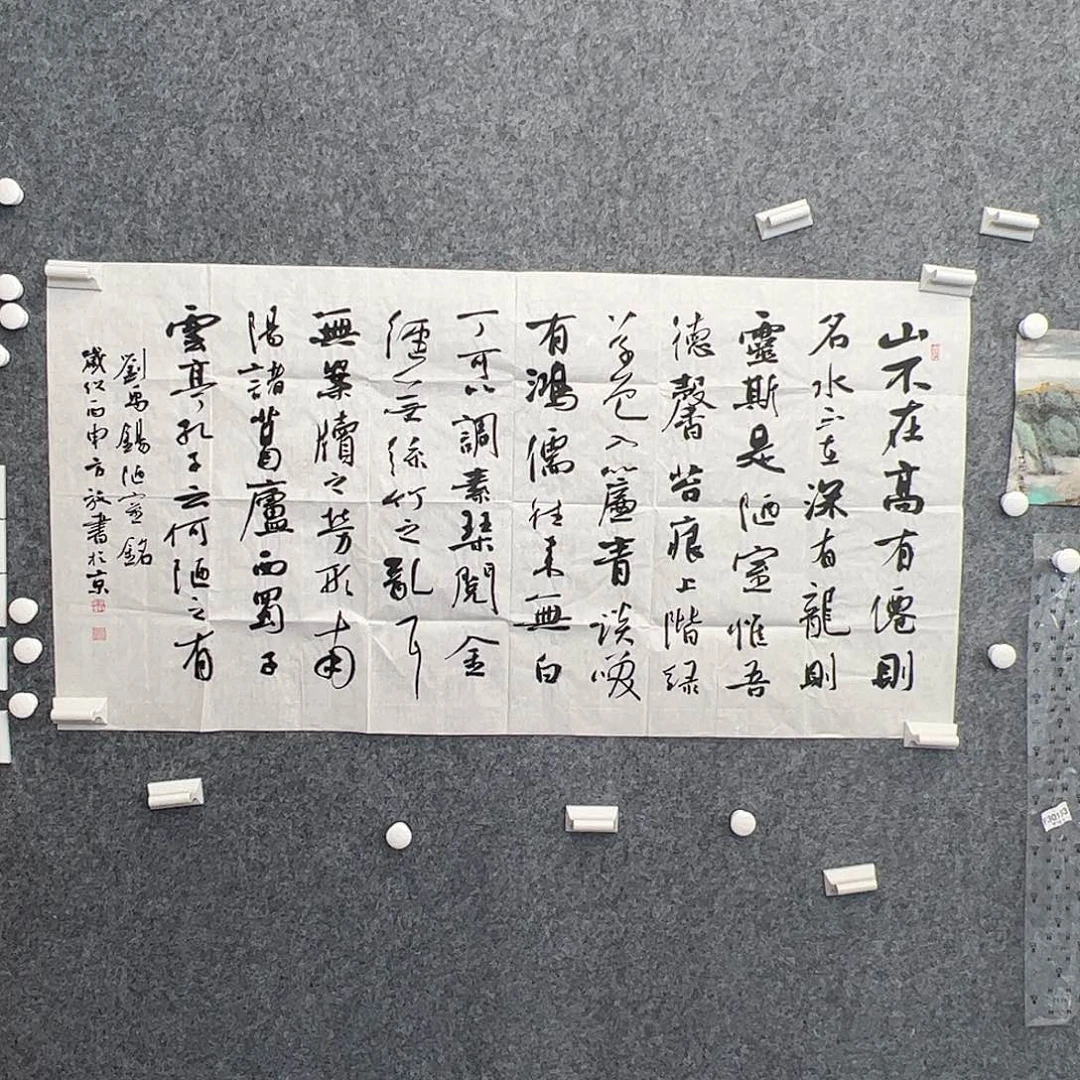 山不在高有僊則
名水不在深有龍則
靈斯是陋室惟吾
德馨苔痕上階緑
草色入簾青談咲
有鴻儒往来無白
丁可以調素琴閲金
經無絲竹之亂耳
無案牘之勞形南
陽諸葛廬西蜀子
雲亭孔子云何陋之有
劉禹錫陋室銘
歲次丙申方放書於京